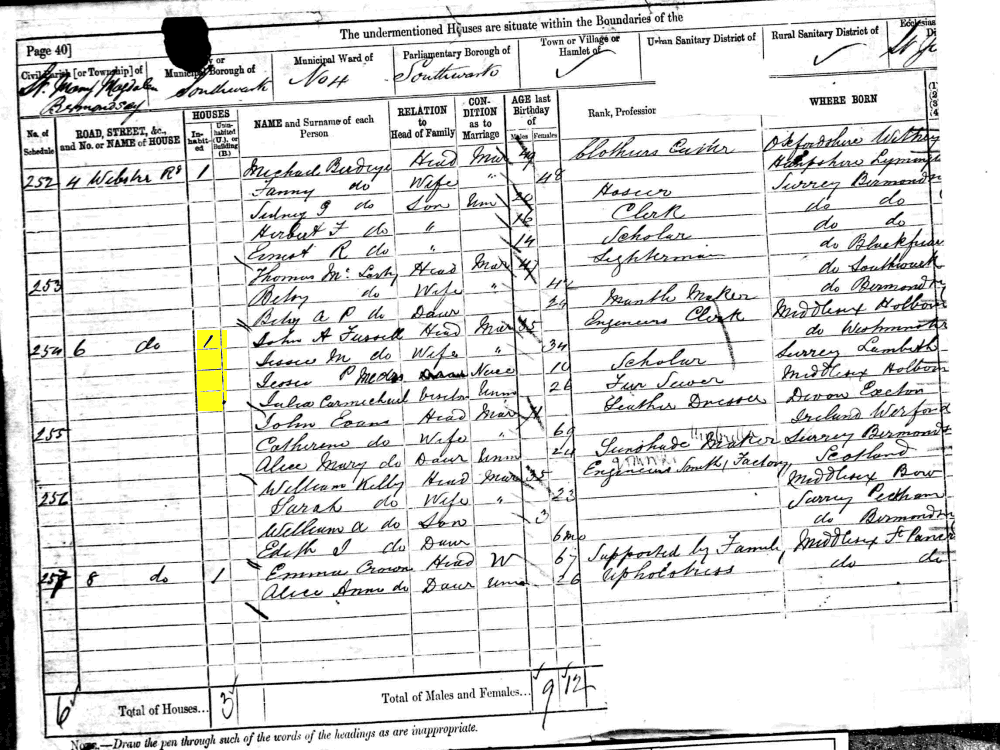 The undermentioned Houses are situate within the Boundaries of the
Page 40]
Civil Parish [or Township] of
St. Mary Magdalen Bermondsey
Municipal Borough of
Southwark
Municipal Ward of
No 4
Parliamentary Borough of
Southwark
Town or Village or Hamlet of
Urban Sanitary District of
Rural Sanitary District of
No. of Schedule
ROAD, STREET, &c., and No. or NAME of HOUSE
HOUSES
Inhabited
Uninhabited (U.), or Building (B.)
NAME and Surname of each Person
RELATION to Head of Family
CONDITION as to Marriage
AGE last Birthday of
Males
Females
Rank, Profession
WHERE BORN
252 4 Webster Rd 1 Michael Head Mar 49 Clothiers Cutter Oxfordshire Witney
Fanny do Wife " 48 Hampshire Lyming
Sidney J do Son Un 20 Hosier Surrey Bermonds
Herbert F do " 16 Clerk do do
Ernest R do " 14 Scholar do do
253 Thomas Mc Head Mar 47 Lighterman do Blackfriar
Betsy do Wife " 42 do Southwark
Betsy A P do Daur 24 Mantle Maker do Bermonds
254 6 do 1 John A Fussell Head Mar 35 Engineers Clerk Middlesex Holborn
Jessie M do Wife " 34 do Westminster
Jessie P Niece 10 Scholar Surrey Lambeth
Julia Carmichael Visitor Unm 26 Fur Sewer Middlesex Holborn
255 John Evans Head Mar Leather Dresser Devon Exeton
Catherine do Wife " 60 Ireland Wexford
Alice Mary do Daur Unm 24 Sunshade Maker Surrey Bermonds
256 William Kelly Head Mar 35 Engineers Smith, Factory Scotland
Sarah do Wife " 23 Middlesex Bow
William A do Son 3 Surrey Peckham
Edith J do Daur 6 mo do Bermonds
257 8 do 1 Emma Crown Head W 67 Supported by Family Middlesex St Pancr
Alice Anne do Daur Unm 26 Upholstress do do
6 Total of Houses... 3 Total of Males and Females... 9 12
Note.—Draw the pen through such of the words of the headings as are inappropriate.